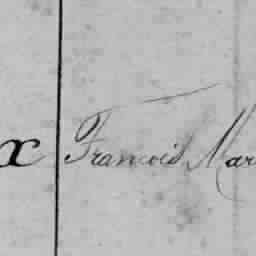 x François Mar